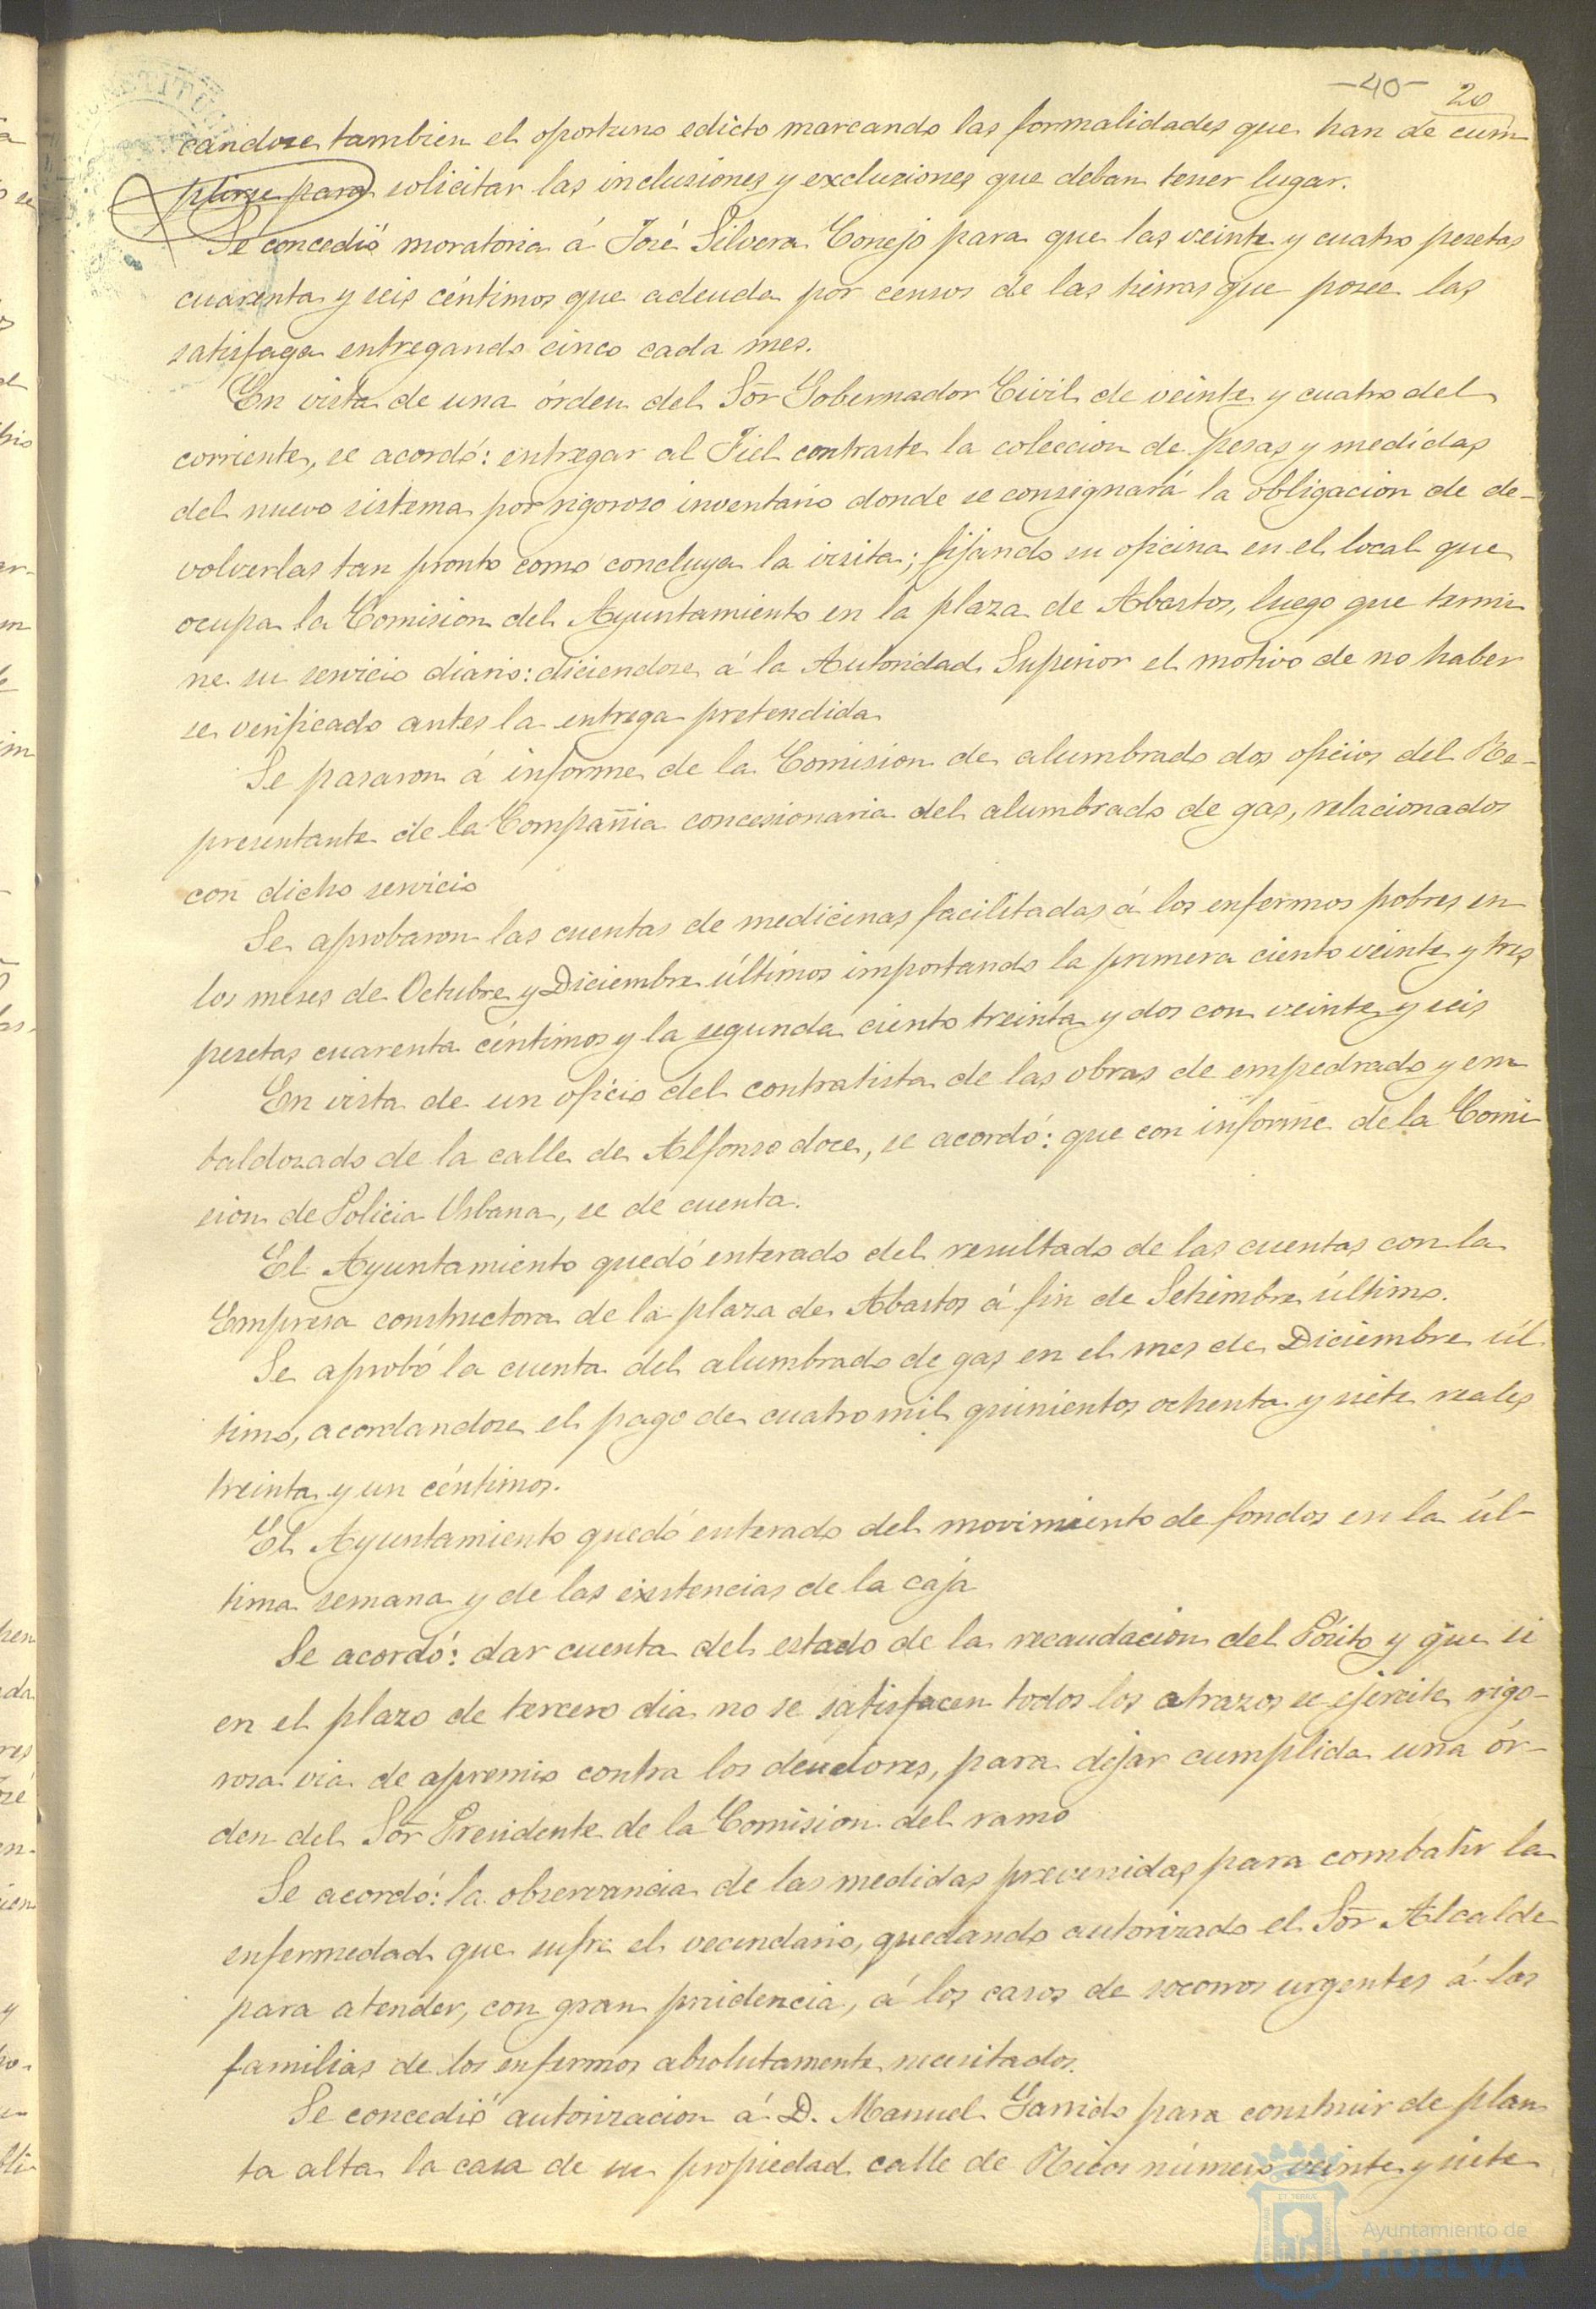 -40- 20
candose tambien el oportuno edicto marcando las formalidades que han de cum
plirse para solicitar las inclusiones y exclusiones que deban tener lugar.
Se concedió moratoria á José Silvera Conejo para que las veinte y cuatro pesetas
cuarenta y seis céntimos que adeuda por censos de las tierras que posee las
satisfaga entregando cinco cada mes.
En vista de una órden del Sōr Gobernador Civil de veinte y cuatro del
corriente, se acordó: entregar al Fiel contraste la coleccion de pesas y medidas
del nuevo sistema por rigoroso inventario donde se consignará la obligacion de de-
volverlas tan pronto como concluya la visita; fijando su oficina en el local que
ocupa la Comision del Ayuntamiento en la plaza de Abastos, luego que termi
ne su servicio diario: diciendose á la Autoridad Superior el motivo de no haber
se verificado antes la entrega pretendida
Se pasaron á informe de la Comision de alumbrado dos oficios del Re-
presentante de la Compañia concesionaria del alumbrado de gas, relacionados
con dicho servicio
Se aprobaron las cuentas de medicinas facilitadas á los enfermos pobres en
los meses de Octubre y Diciembre últimos importando la primera ciento veinte y tres
pesetas cuarenta céntimos y la segunda ciento treinta y dos con veinte y seis
En vista de un oficio del contratista de las obras de empedrado y em
baldosado de la calle de Alfonso doce, se acordó: que con informe de la Comi
sion de Policia Urbana, se de cuenta.
El Ayuntamiento quedó enterado del resultado de las cuentas con la
Empresa constructora de la plaza de Abastos á fin de Setiembre último.
Se aprobó la cuenta del alumbrado de gas en el mes de Diciembre úl
timo, acordandose el pago de cuatro mil quinientos ochenta y siete reales
treinta y un céntimos.
El Ayuntamiento quedó enterado del movimiento de fondos en la úl-
tima semana y de las existencias de la caja
Se acordó: dar cuenta del estado de la recaudacion del Pósito y que si
en el plazo de tercero dia no se satisfacen todos los atrazos se ejercite rigo-
rosa via de apremio contra los deudores, para dejar cumplida una ór-
den del Sōr Presidente de la Comision del ramo
Se acordó: la observancia de las medidas prevenidas para combatir la
enfermedad que sufre el vecindario, quedando autorizado el Sōr Alcalde
para atender, con gran prudencia, á los casos de socorros urgentes á las
familias de los enfermos absolutamente necesitados.
Se concedió autorizacion á D. Manuel Garrido para construir de plan
ta alta la casa de su propiedad calle de Ricos número veinte y siete
Ayuntamiento de
HUELVA